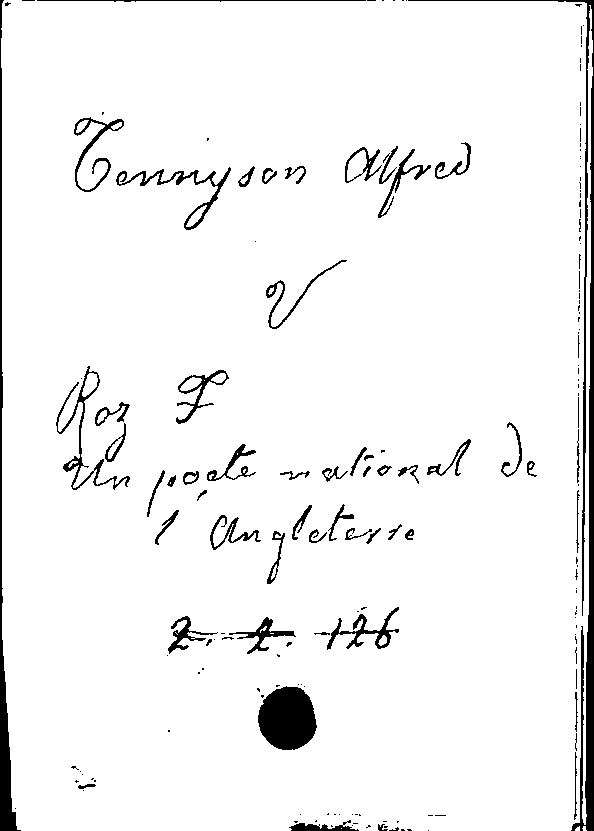 Tennyson Alfred
V
Roz F
Un poete national de
l'Angleterre
2. 2. 126